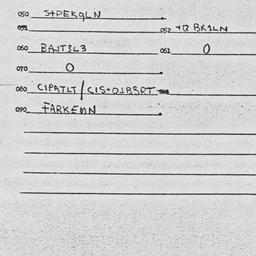 050 S+DEKQLN
052 +B BR1LN
060 BAJT3L3 061 0
070 0
080 CIPATLT/CIS+OJB3DT
090 FARKEMN